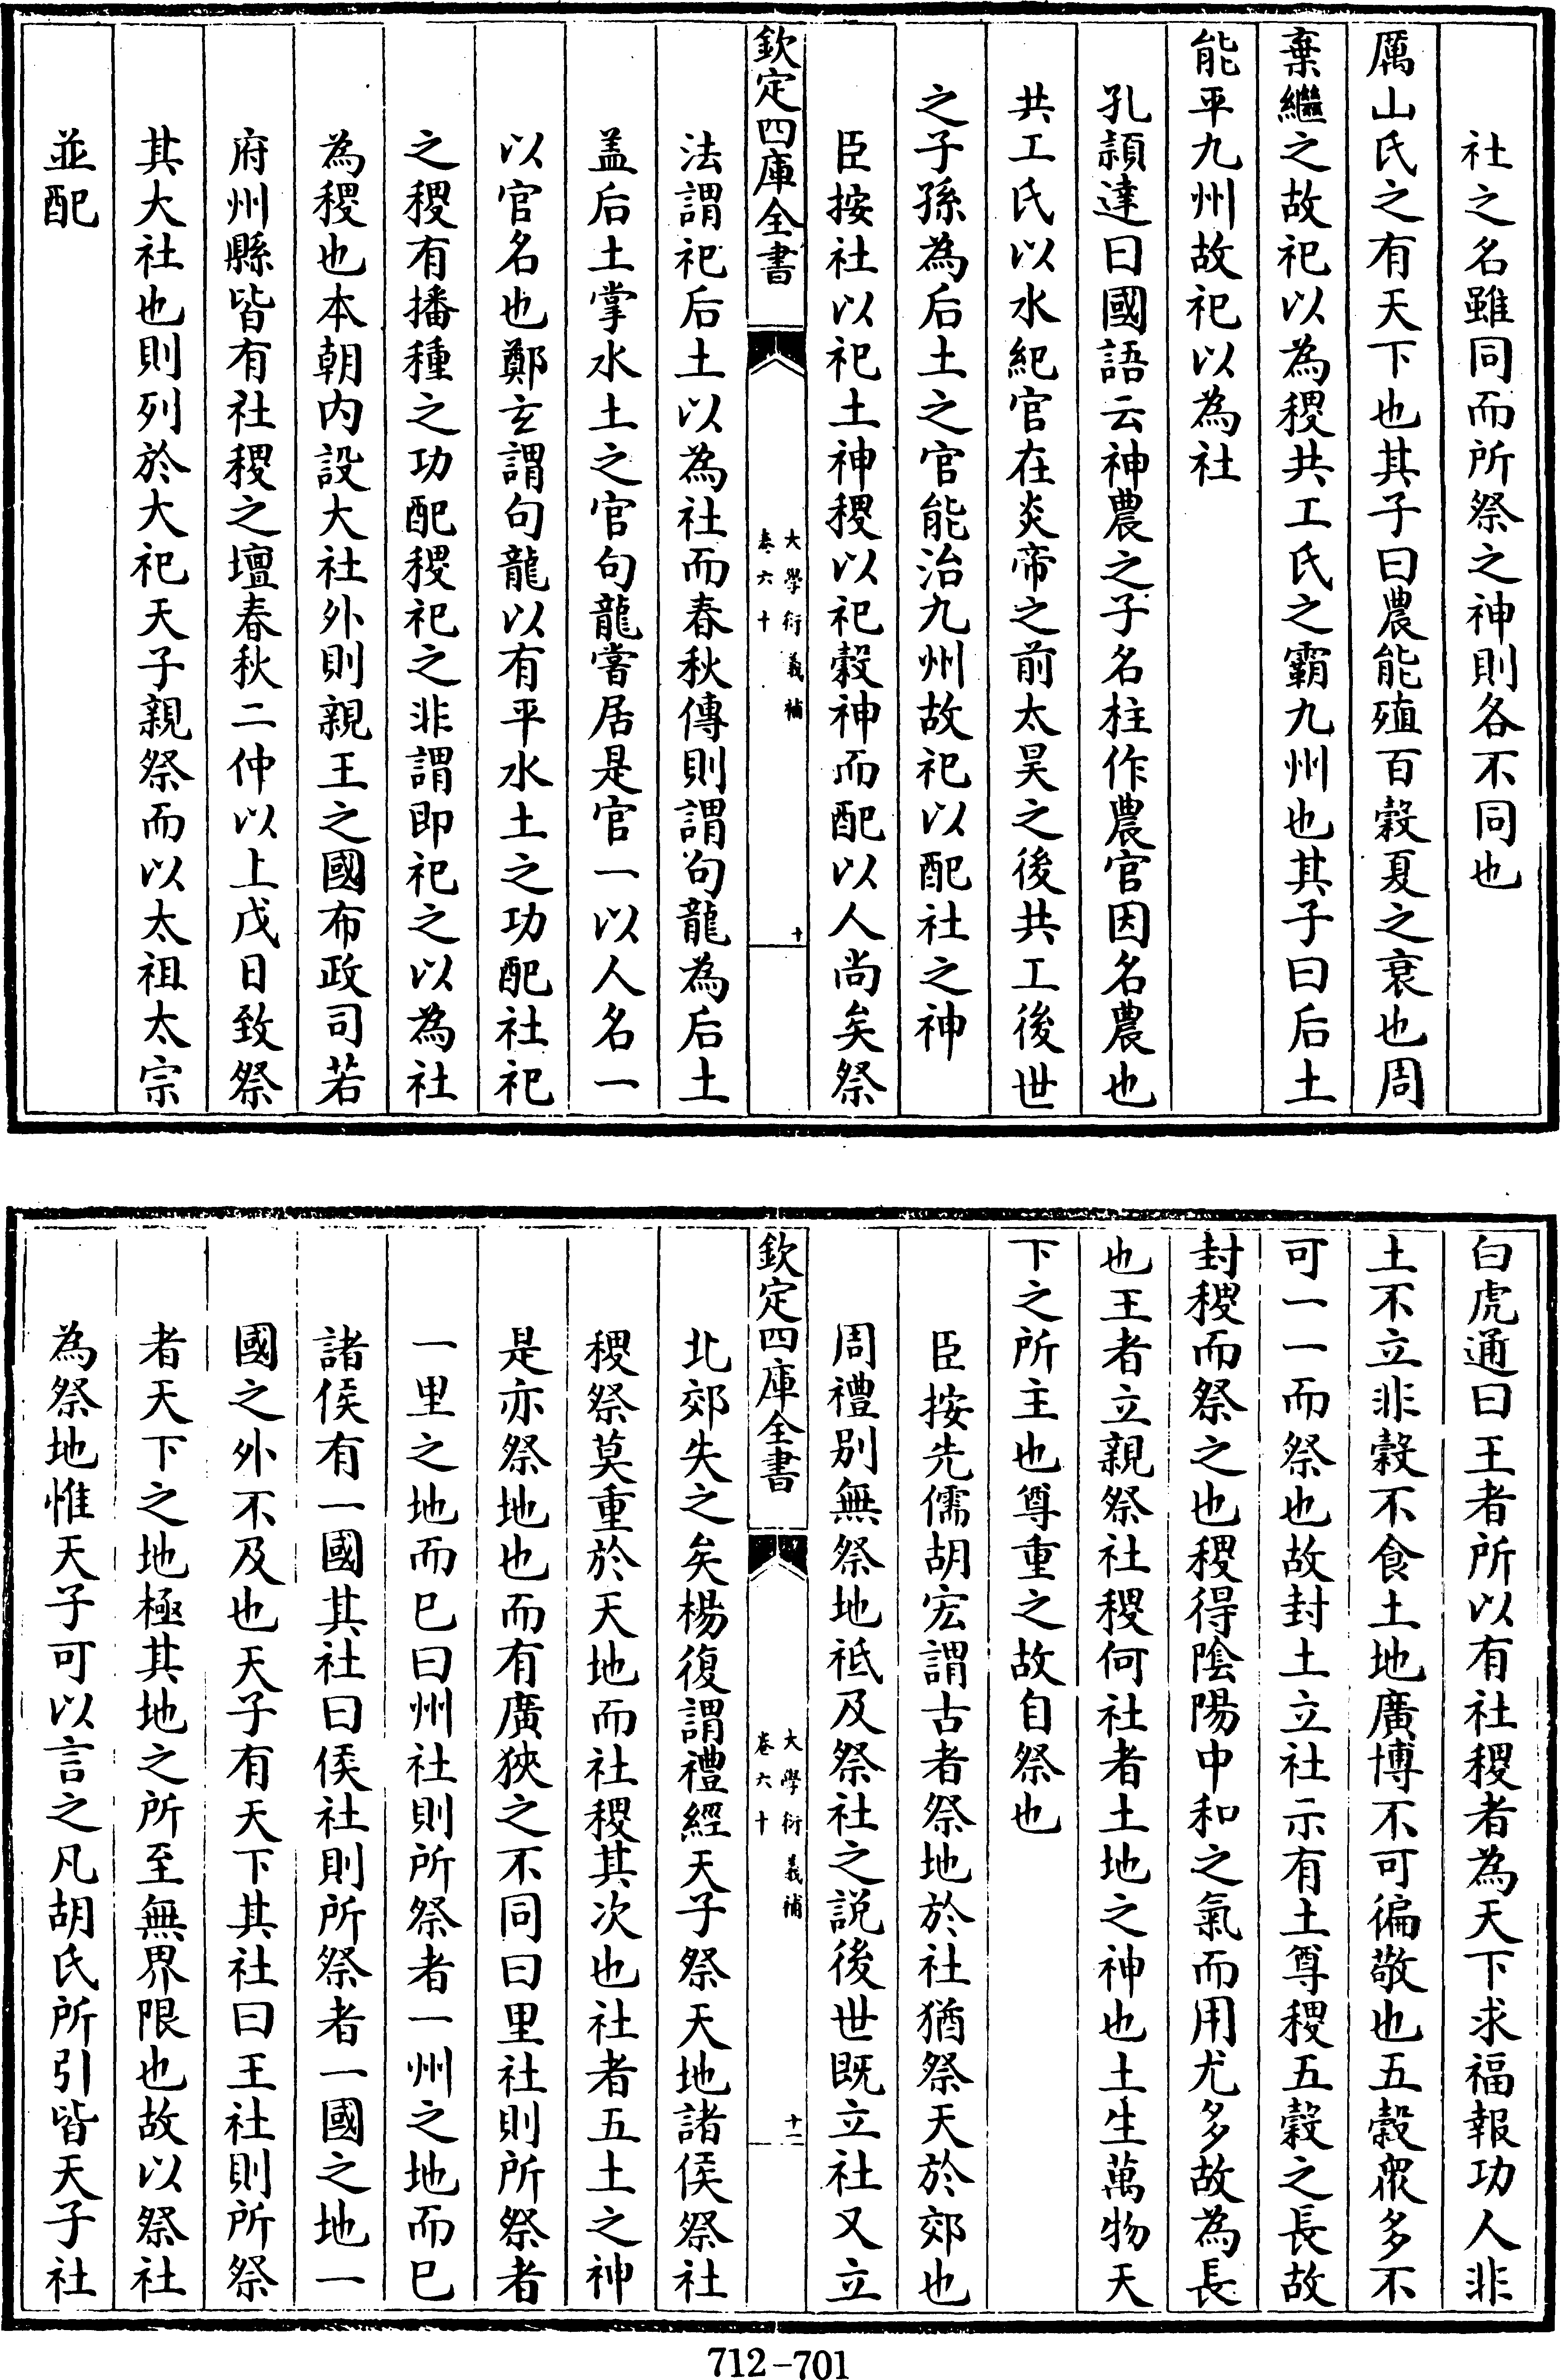 社之名雖同而所祭之神則各不同也
厲山氏之有天下也其子曰農能殖百穀夏之衰也周
棄繼之故祀以為稷共工氏之霸九州也其子曰后土
能平九州故祀以為社
孔頴達曰國語云神農之子名柱作農官因名農也
共工氏以水紀官在炎帝之前太昊之後共工後世
之子孫為后土之官能治九州故祀以配社之神
臣按社以祀土神稷以祀穀神而配以人尚矣祭
欽定四庫全書
大學衍義補
卷六十
十
法謂祀后土以為社而春秋傳則謂句龍為后土
盖后土掌水土之官句龍嘗居是官一以人名一
以官名也鄭玄謂句龍以有平水土之功配社祀
之稷有播種之功配稷祀之非謂即祀之以為社
為稷也本朝内設大社外則親王之國布政司若
府州縣皆有社稷之壇春秋二仲以上戊日致祭
其大社也則列於大祀天子親祭而以太祖太宗
並配
白虎通曰王者所以有社稷者為天下求福報功人非
土不立非穀不食土地廣博不可徧敬也五穀衆多不
可一一而祭也故封土立社示有土尊稷五穀之長故
封稷而祭之也稷得陰陽中和之氣而用尤多故為長
也王者立親祭社稷何社者土地之神也土生萬物天
下之所主也尊重之故自祭也
臣按先儒胡宏謂古者祭地於社猶祭天於郊也
周禮別無祭地祗及祭社之説後世既立社又立
欽定四庫全書
大學衍義補
卷六十
十一
北郊失之矣楊復謂禮經天子祭天地諸侯祭社
稷祭莫重於天地而社稷其次也社者五土之神
是亦祭地也而有廣狹之不同曰里社則所祭者
一里之地而已曰州社則所祭者一州之地而已
諸侯有一國其社曰侯社則所祭者一國之地一
國之外不及也天子有天下其社曰王社則所祭
者天下之地極其地之所至無界限也故以祭社
為祭地惟天子可以言之凡胡氏所引皆天子社
712-701